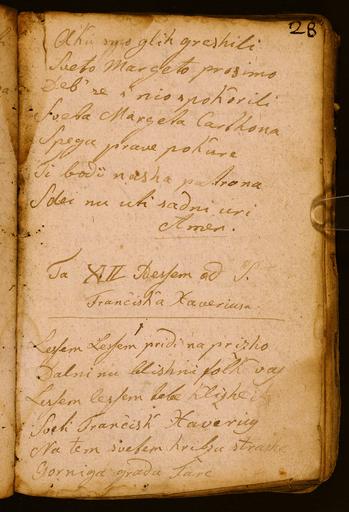 28
Aku smo glih greshili
Sveto Margeto prosimo
De b' se s' nio spokorili
Sveta Margeta Carthona
Spega prave pokure
Ti bodi nasha patrona
Sdei nu uti sadni uri
Amen.
Ta XII Pessem od S.
Francishka Xaveriusa.
Lessem Lessem pridi na prizho
Dalni nu blishni folk vas
Lessem lessem tebe klizhe
Sveti Francisk Xaverius
Na tem svetem kribzu
Gorniga grada